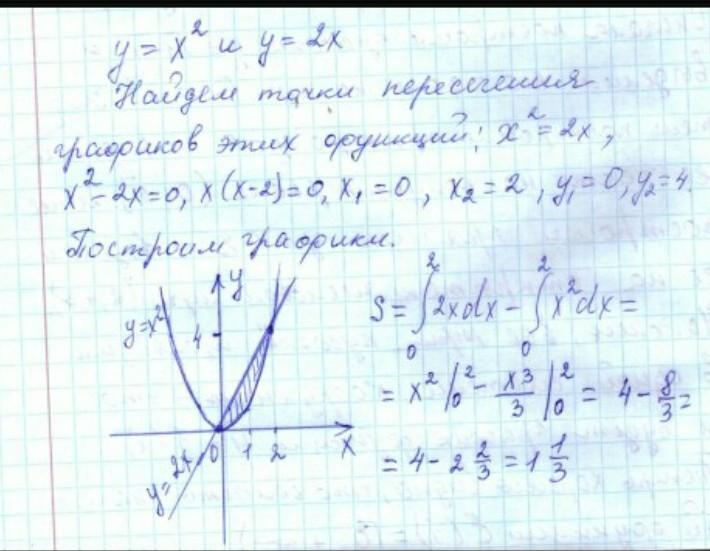 y = x² и y = 2x
Найдем точки пересечения
графиков этих функций: x² = 2x,
x² - 2x = 0, x(x-2) = 0, x₁ = 0, x₂ = 2, y₁ = 0, y₂ = 4.
Построим графики.
y
y=x²
4
0 1 2 x
y=2x
S = ∫₀² 2xdx - ∫₀² x²dx =
= x² |₀² - x³/3 |₀² = 4 - 8/3 =
= 4 - 2 2/3 = 1 1/3